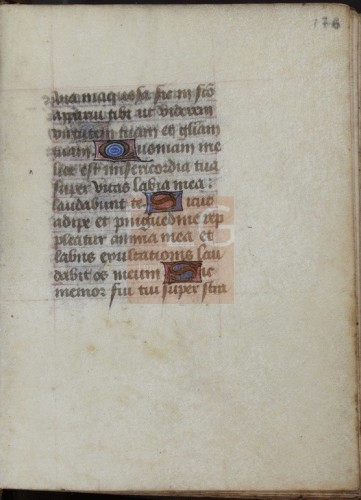 176
qua inaquosa sic in scō
apparui tibi ut viderem
virtutem tuam et gliam
tuam Quoniam me
lior est misericordia tua
super vitas labia mea
laudabunt te Sicut
adipe et pinguedine rep
pleatur anima mea et
labiis exultationis lau
dabit os meum Sic
memor fui tui super stra